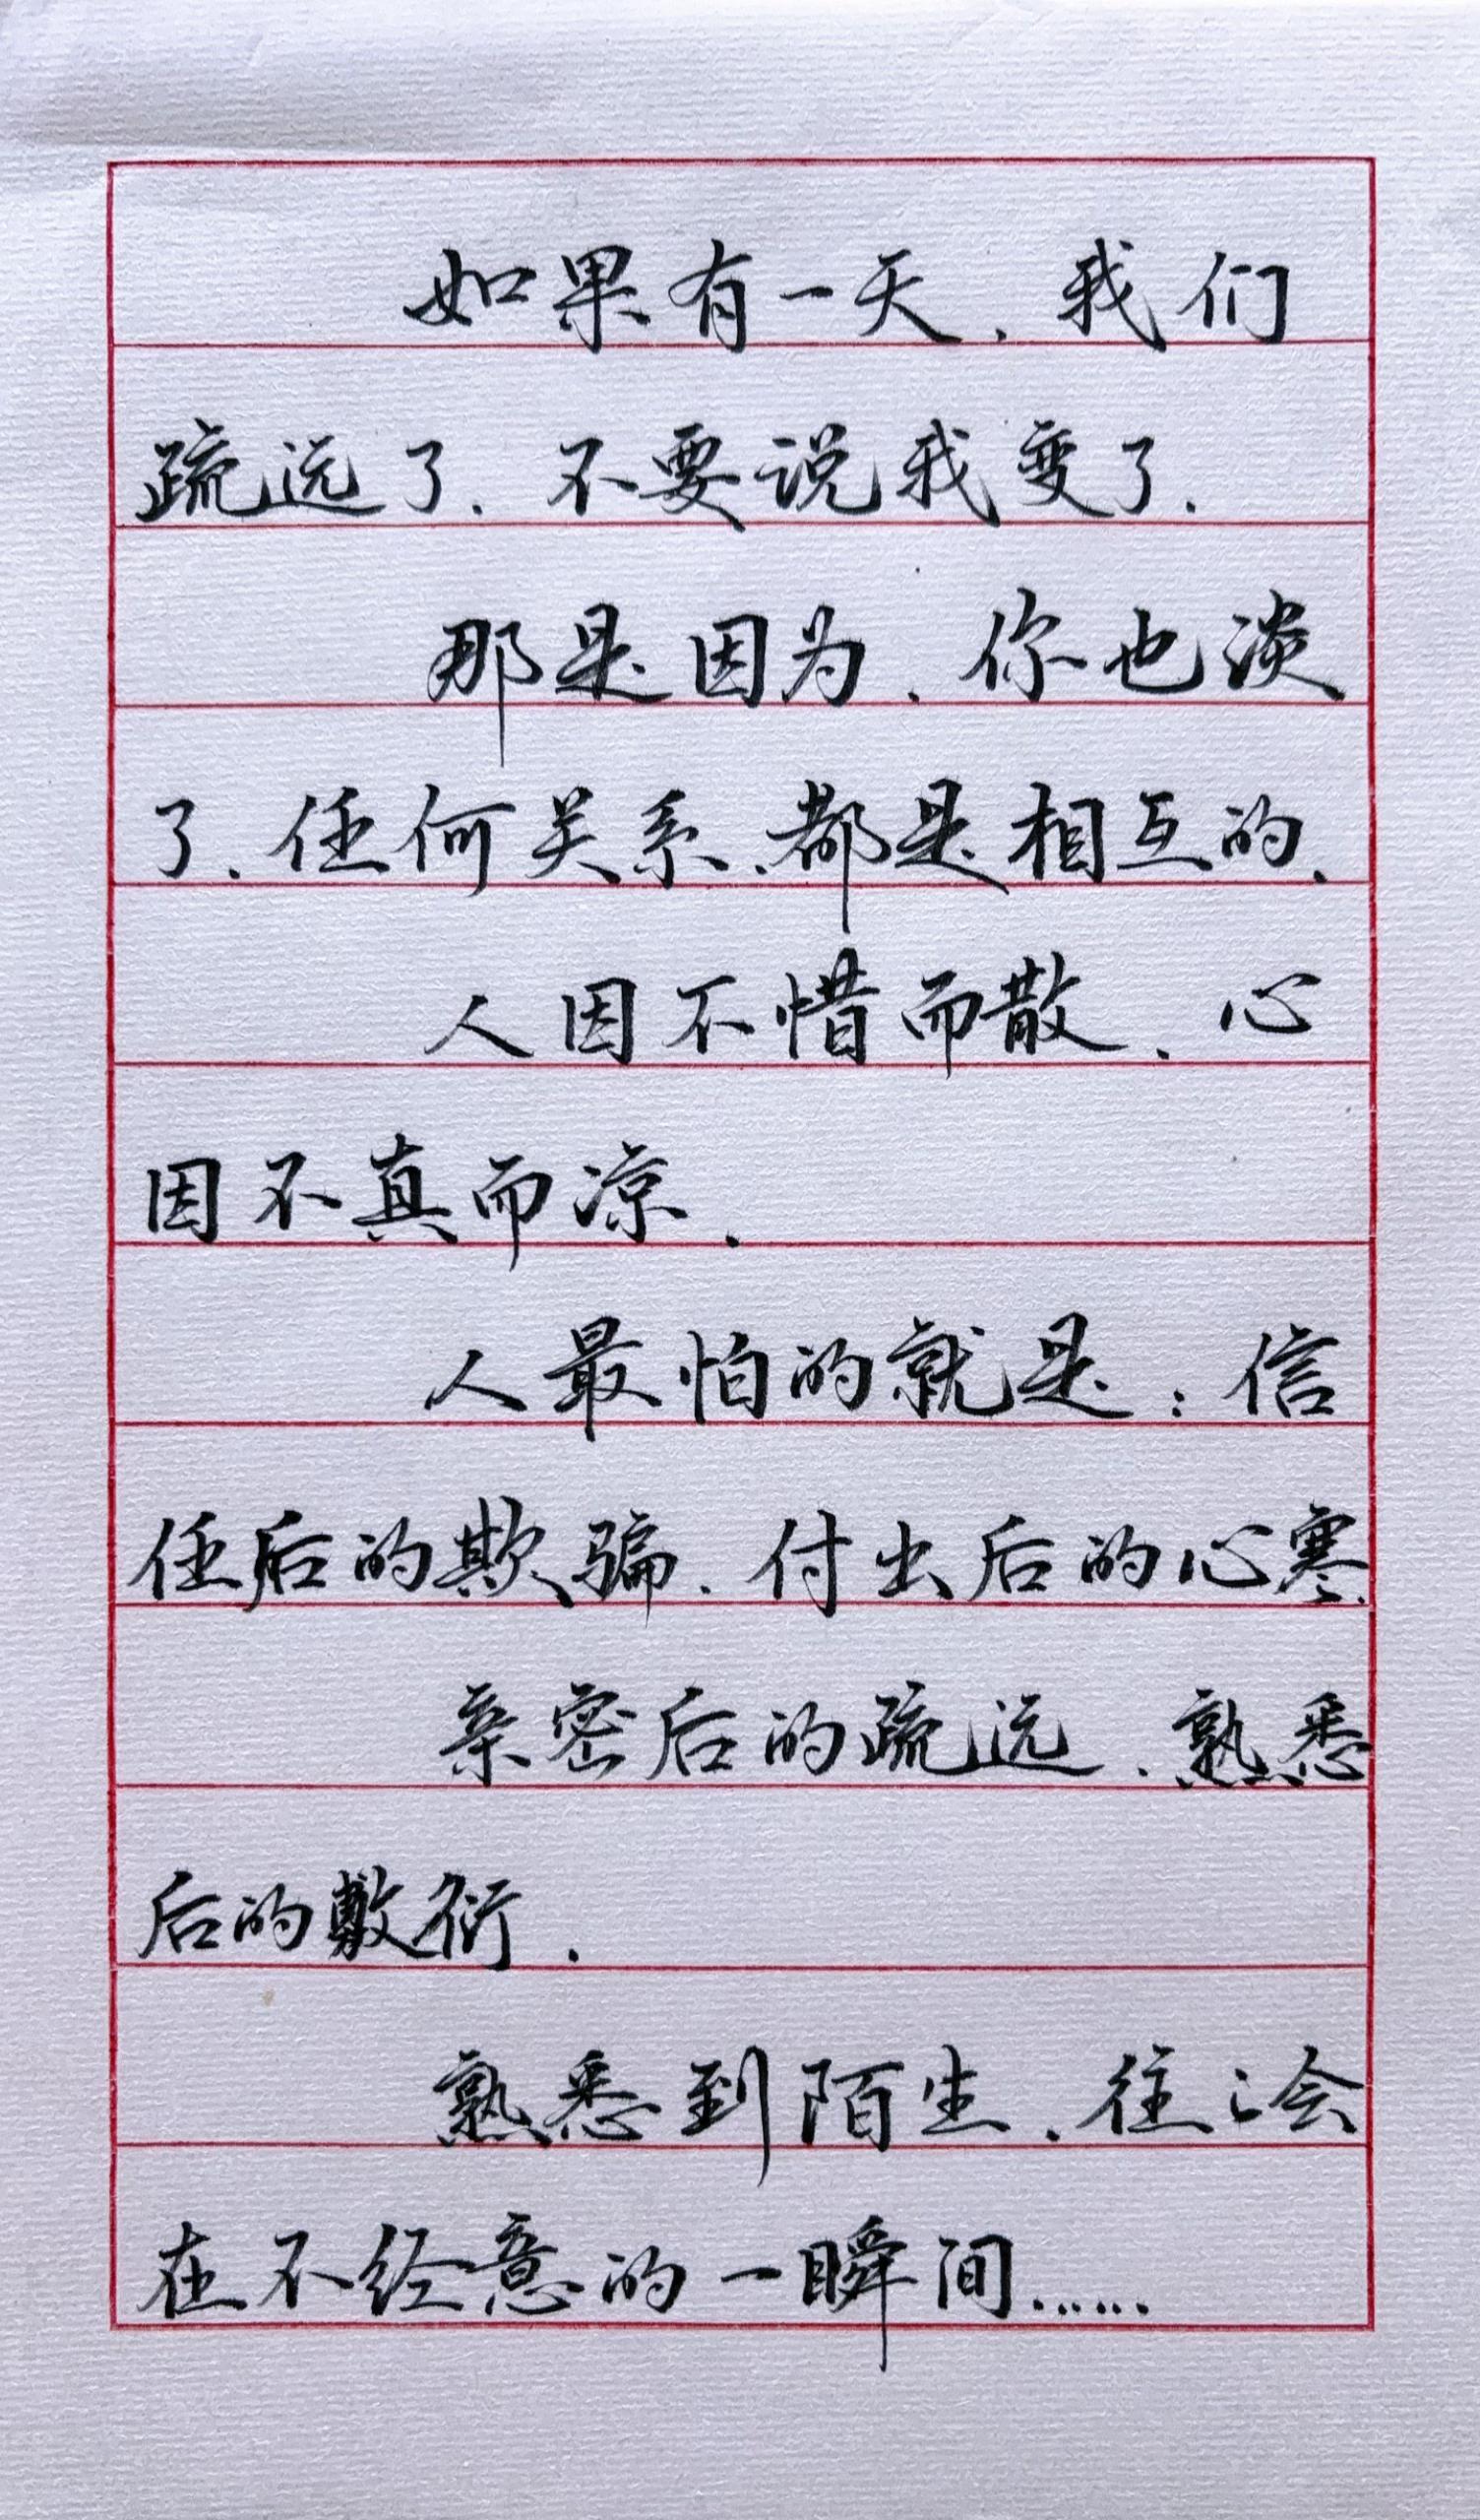 如果有一天、我们
疏远了、不要说我变了.
那是因为、你也淡
了、任何关系、都是相互的.
人因不惜而散、心
因不真而凉.
人最怕的就是：信
任后的欺骗、付出后的心寒.
亲密后的疏远、熟悉
后的敷衍.
熟悉到陌生、往々会
在不经意的一瞬间……